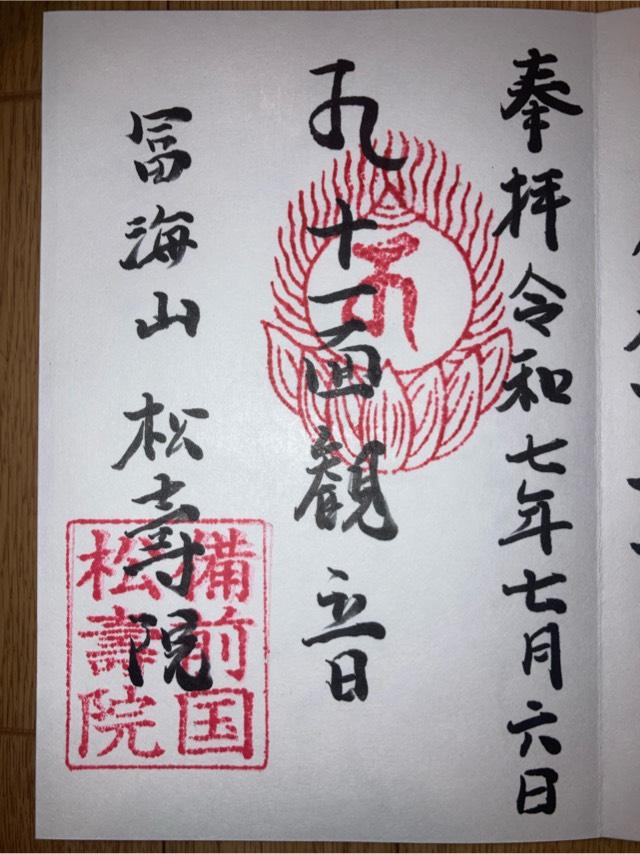 奉拝 令和七年七月六日
十一面観音
冨海山 松壽院
備前国
松壽院